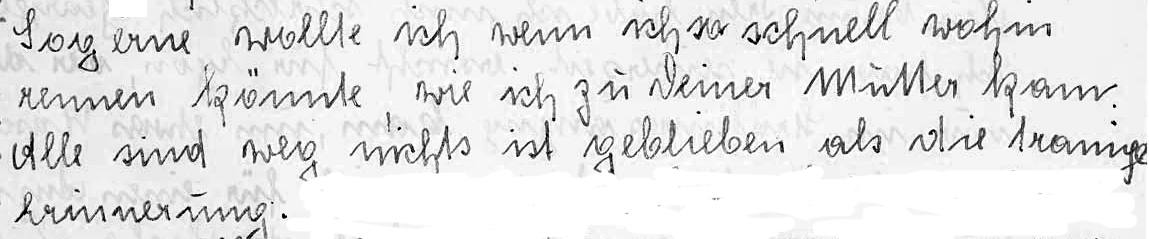 Sogerne wollte ich wenn ich so schnell wohin
rennen könnte wie ich zu Deiner Mutter kam.
Alle sind weg nichts ist geblieben als die traurige
Erinnerung.